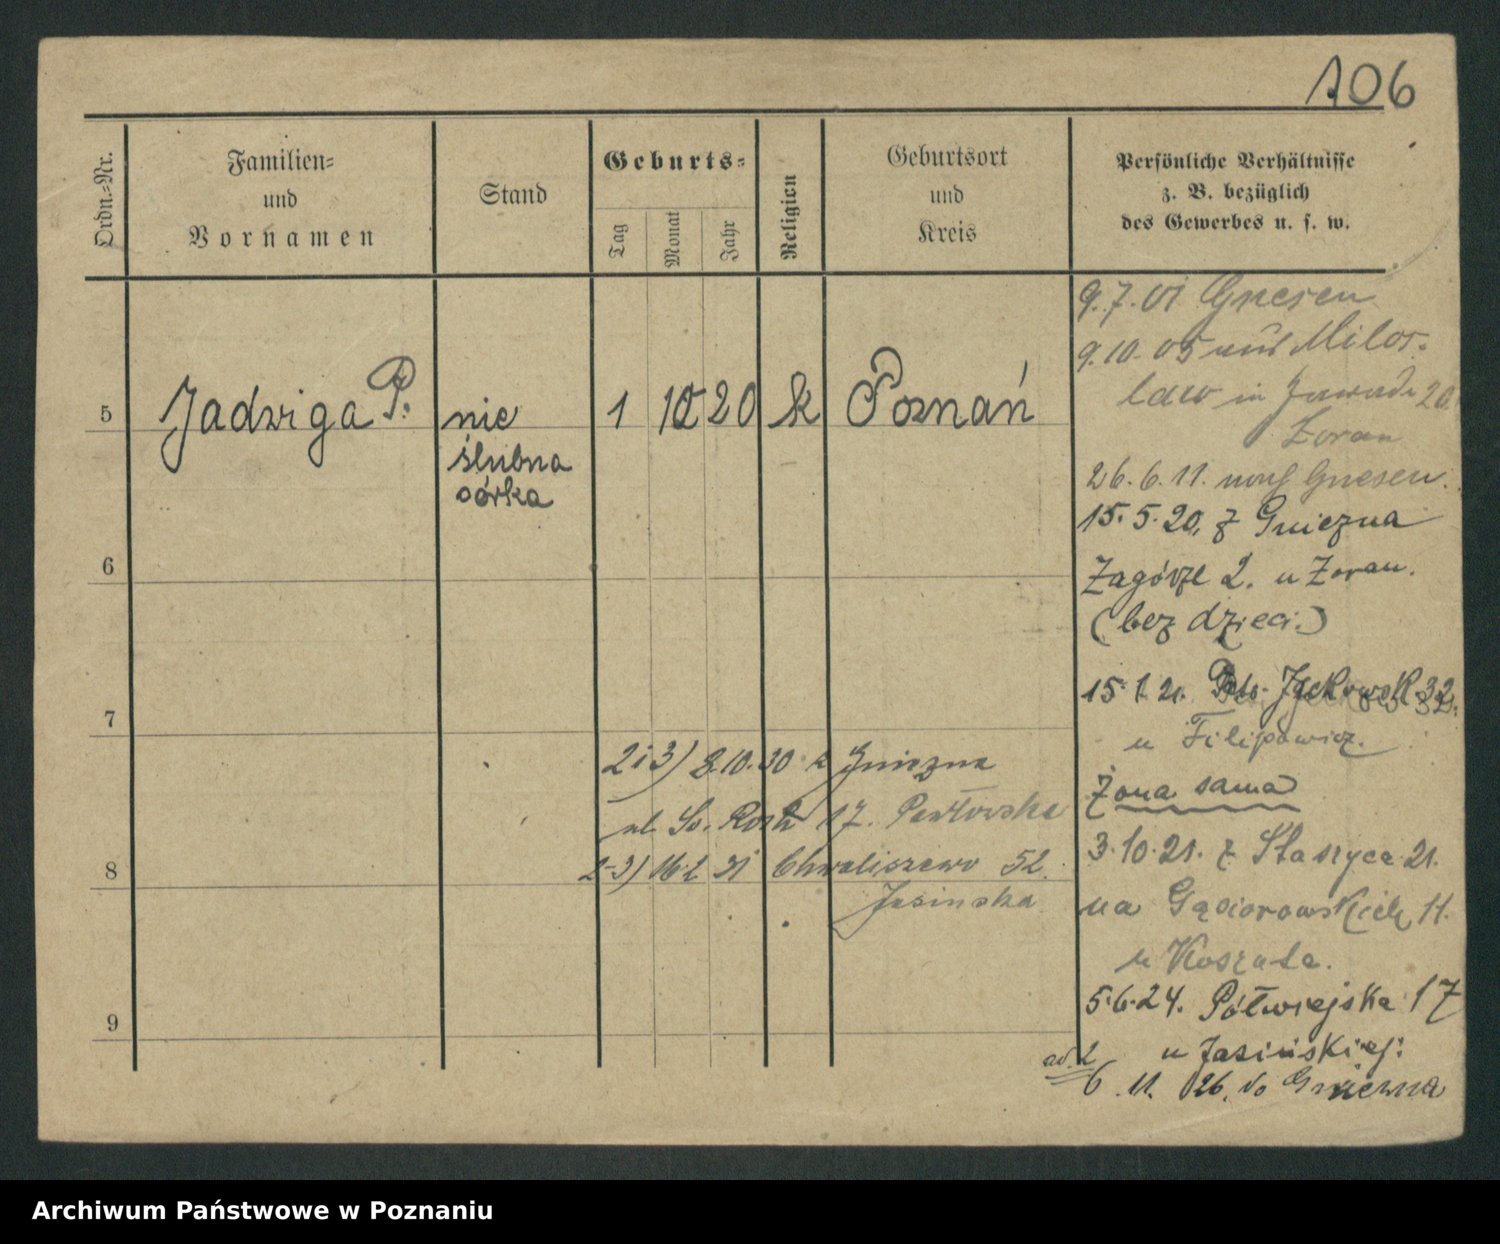 106
Ordn.-Nr.
Familien-
und
Vornamen
Stand
Geburts-
Tag
Monat
Jahr
Religion
Geburtsort
und
Kreis
Persönliche Verhältnisse
z. B. bezüglich
des Gewerbes u. s. w.
5
Jadwiga P.
nie
ślubna
córka
1 10 20 k Poznań
6
7
8
9
9.7.01 Gnesen
9.10.05 aus Milos-
law in
Zoran
26.6.11. nach Gnesen.
15.5.20, z Gniezna
Zagórze 2. u Zoran.
(bez dzieci.)
15.1.21. 32.
u Filipowicz.
Żona sama
3.10.21. z Staszyca 21.
na Gąsiorowskich 11.
u Koszuta.
5.6.24. Półwiejska 17
u Jasińskiej:
ad. 2
6. 11. 26. do Gniezna
2 i 3) 8.10.30 z Gniezna
ul. Św. Rocha 17. Pawłowska
2-3) 16.2 31 Chwaliszewo 52.
Jasinska
Archiwum Państwowe w Poznaniu